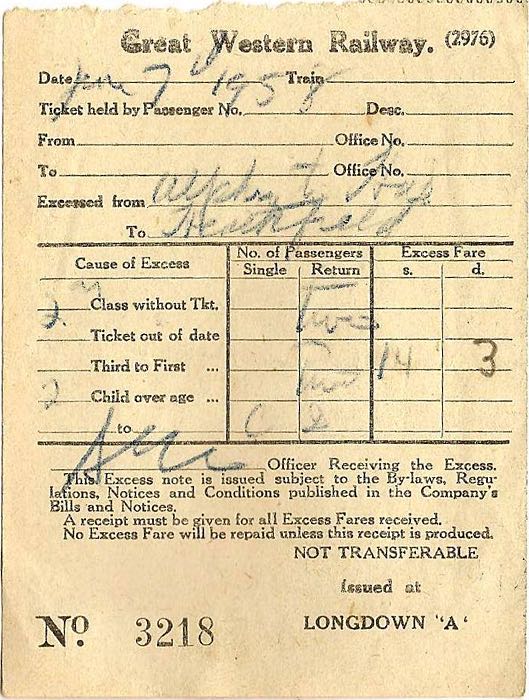 Great Western Railway. (2976)
Date Jan 7 1958 Train
Ticket held by Passenger No. Desc.
From Office No.
To Office No.
Excessed from
To Heathfield
Cause of Excess No. of Passengers Excess Fare
Single Return s. d.
2 Class without Tkt. Two
Ticket out of date
Third to First ... Two 14 3
2 Child over age ...
to
Officer Receiving the Excess.
This Excess note is issued subject to the By-laws, Regu-
lations, Notices and Conditions published in the Company's
Bills and Notices.
A receipt must be given for all Excess Fares received.
No Excess Fare will be repaid unless this receipt is produced.
NOT TRANSFERABLE
Issued at
No. 3218 LONGDOWN "A"